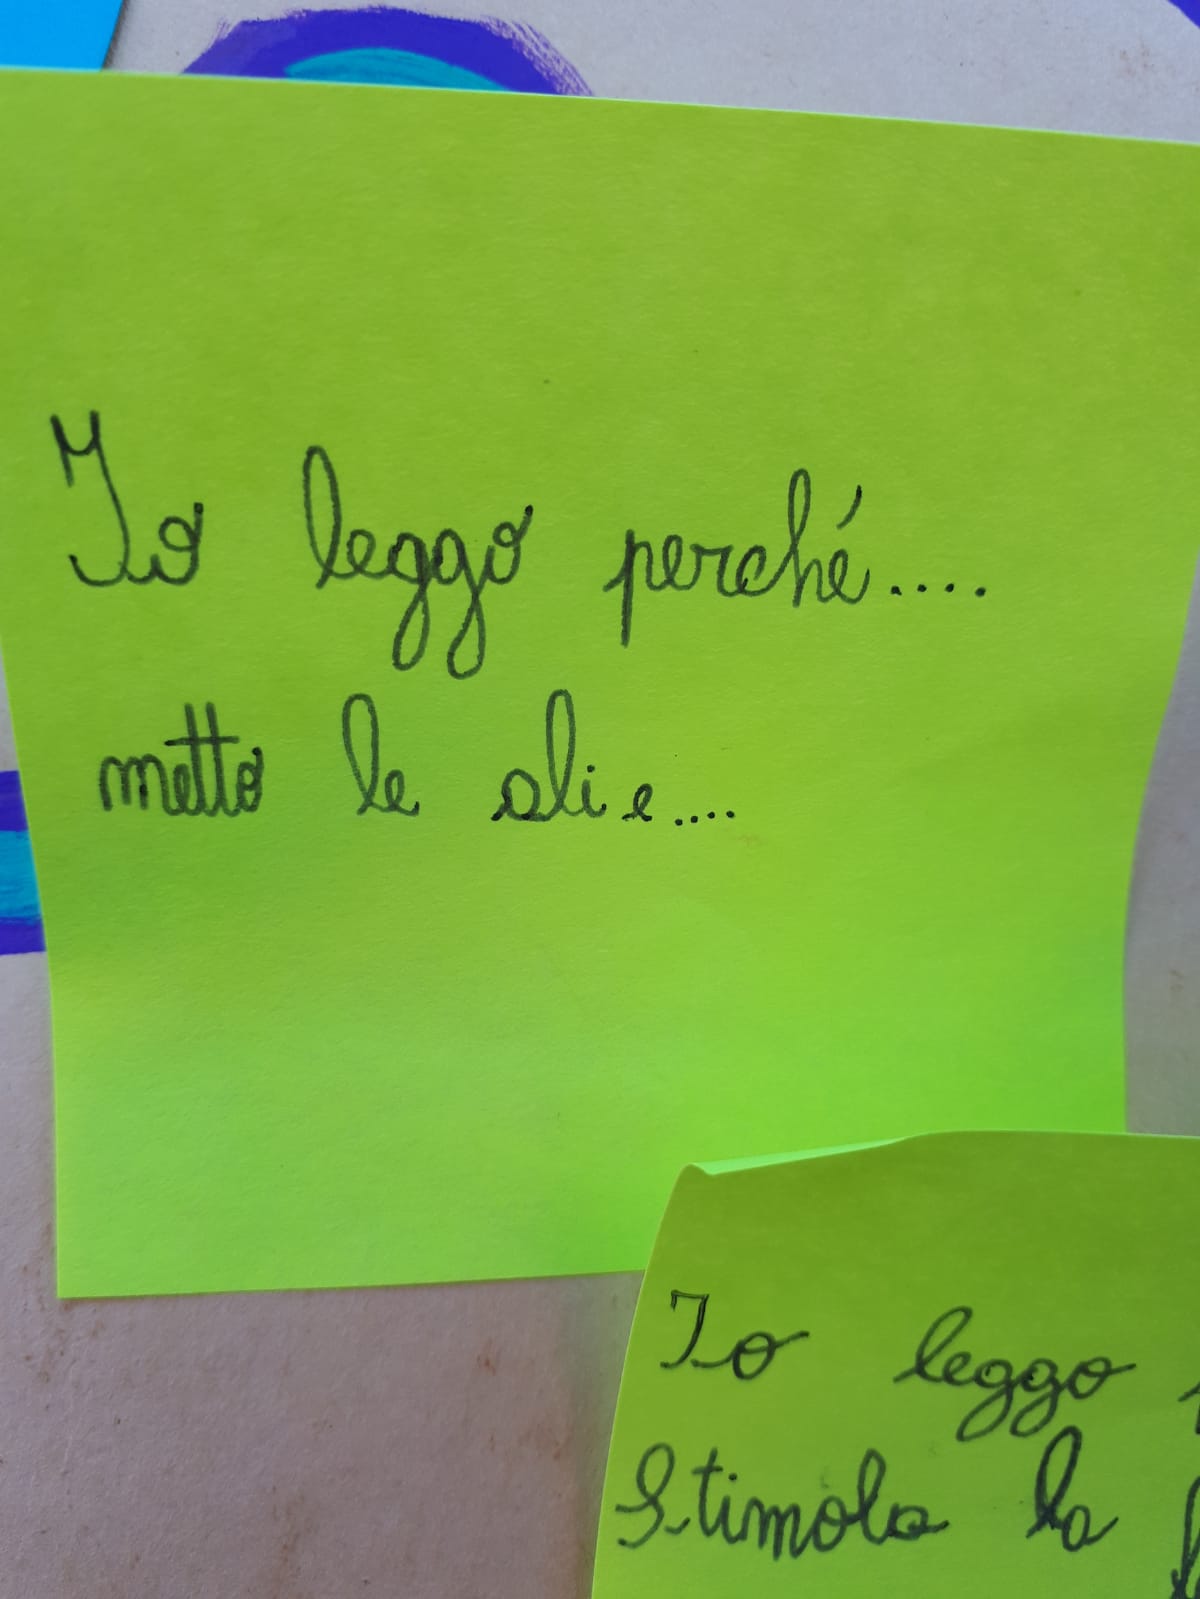 Io leggo perché....
metto le ali e....
Io leggo
Stimola la